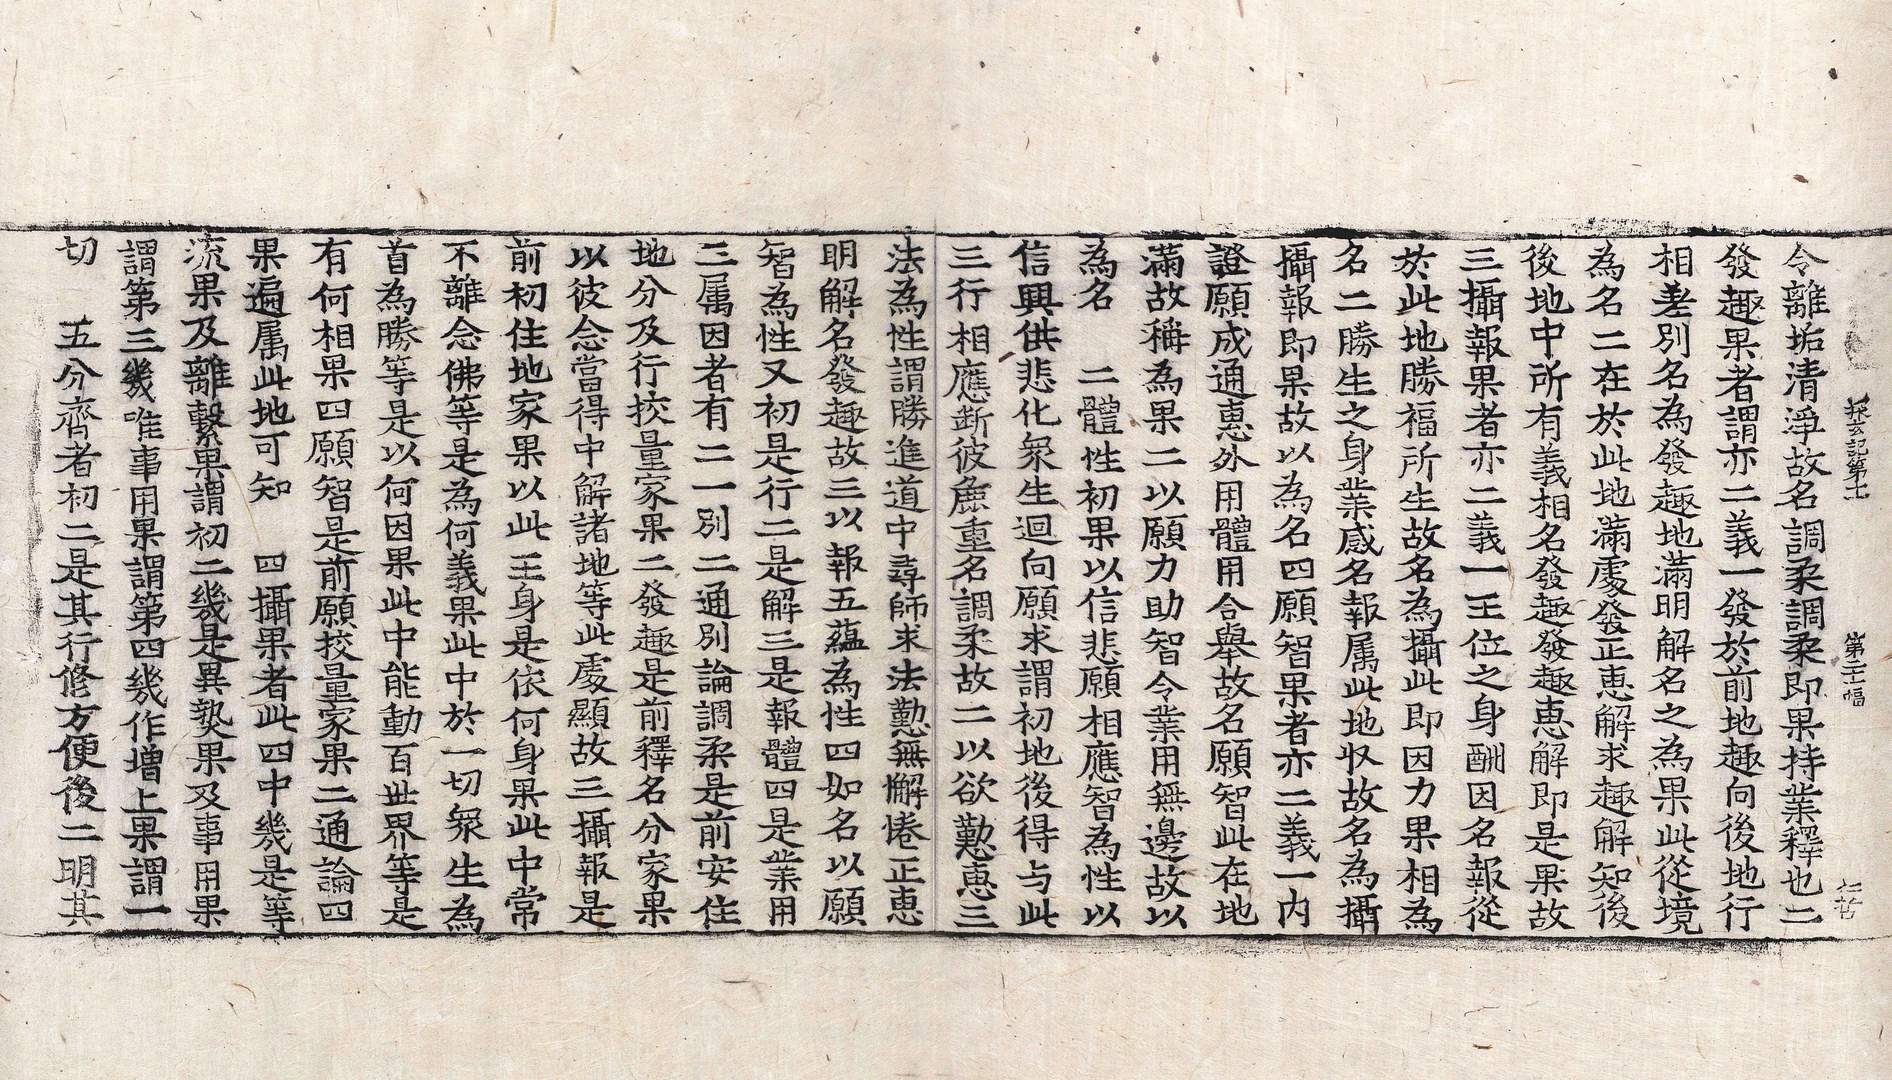 探玄記第十 第二十幅
令離垢清淨故名調柔調柔即果持業釋也二
發趣果者謂亦二義一發於前地趣向後地行
相差別名為發趣地滿明解名之為果此從境
為名二在於此地滿處發正恵解求趣解知後
後地中所有義相名發趣發趣恵解即是果故
三攝報果者亦二義一王位之身酬因名報從
於此地勝福所生故名為攝此即因力果相為
名二勝生之身業感名報属此地収故名為攝
攝報即果故以為名四願智果者亦二義一内
證願成通恵外用體用合舉故名願智此在地
滿故稱為果二以願力助智令業用無邊故以
為名 二體性初果以信悲願相應智為性以
信興供悲化衆生迴向願求謂初地後得与此
三行相應断彼麁重名調柔故二以欲勤恵三
法為性謂勝進道中尋師求法勤無懈惓正恵
明解名發趣故三以報五蘊為性四如名以願
智為性又初是行二是解三是報體四是業用
三属因者有二一別二通別論調柔是前安住
地分及行挍量家果二發趣是前釋名分家果
以彼念當得中解諸地等此處顯故三攝報是
前初住地家果以此王身是依何身果此中常
不離念佛等是為何義果此中於一切衆生為
首為勝等是以何因果此中能動百世界等是
有何相果四願智是前願挍量家果二通論四
果遍属此地可知 四攝果者此四中幾是等
流果及離繫果謂初二幾是異𤍠果及事用果
謂第三幾唯事用果謂第四幾作増上果謂一
切 五分齊者初二是其行修方便後二明其